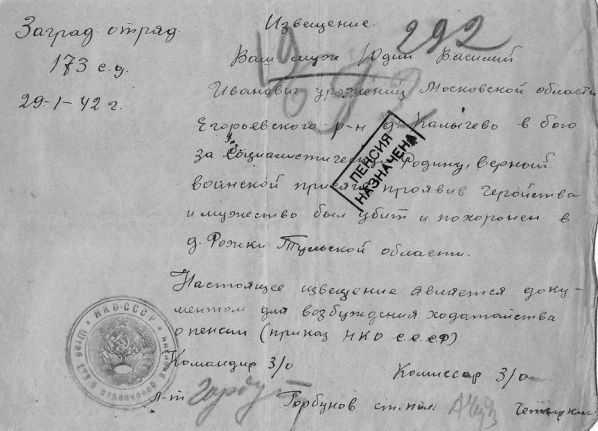 Заград. отряд.
173 с.д.
29-1-42 г.
Извещение.
292
Ваш муж Юдин Василий
Иванович уроженец Московской области
Егорьевского р-н д. Калычево в бою
за Социалистическую Родину, верный
воинской присяге, проявив геройство
и мужество был убит и похоронен в
д. Фомики Тульской области.
ПЕНСИЯ
НАЗНАЧЕНА
Настоящее извещение является доку-
ментом для возбуждения ходатайства
о пенсии (приказ НКО С.С.С.Р)
НКО-СССР
Командир З/о
Комиссар З/о
Л-т Горбунов ст. пол.